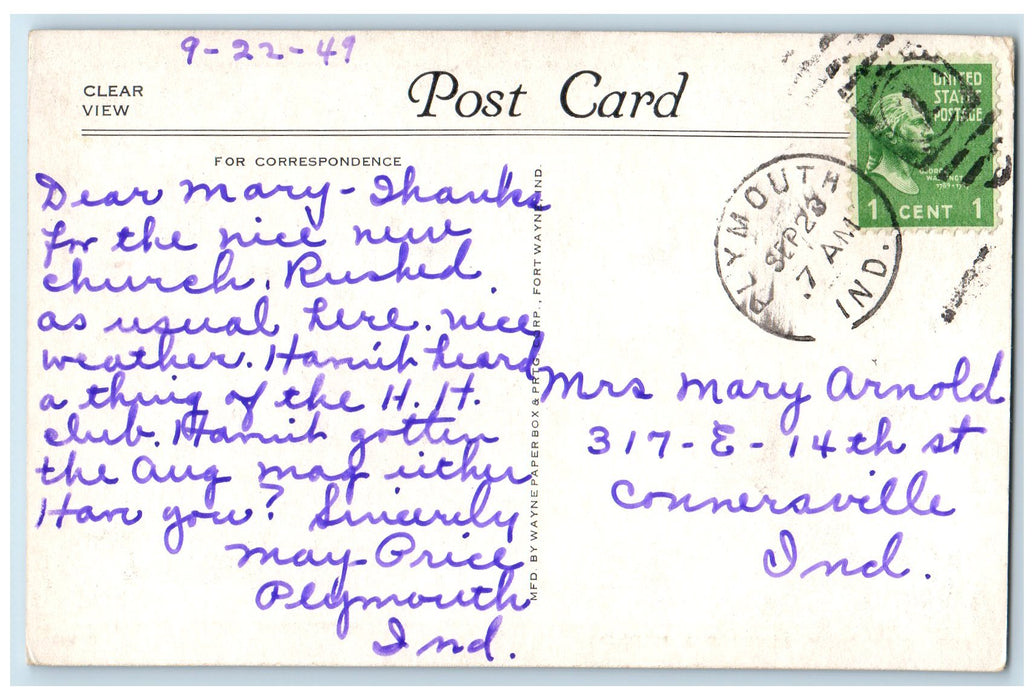 9-22-49
CLEAR
VIEW
Post Card
FOR CORRESPONDENCE
Dear Mary - Thanks
for the nice new
church. Rushed
as usual here. nice
weather. Havn't heard
a thing of the H. H.
club. Havn't gotten
the Aug mag either
Have you? Sincerely
May Price
Plymouth
Ind.
MFD. BY WAYNE PAPER BOX & PRTG. CORP., FORT WAYNE, IND.
UNITED
STATES
POSTAGE
GEORGE
WASHINGTON
1 CENT 1
PLYMOUTH
SEP 23
7 AM
IND.
Mrs Mary Arnold
317 - E - 14th st
Connersville
Ind.